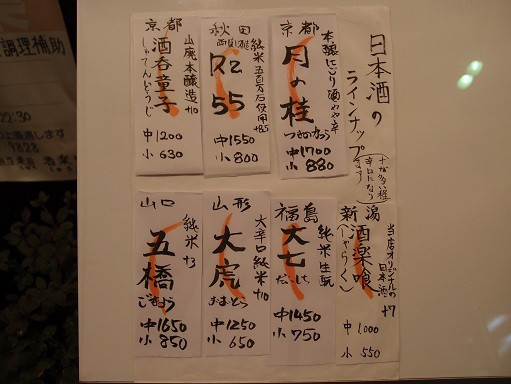 日本酒の
ラインナップ
(+が多い程
辛口になり
ます)
京都
本醸にごり酒 やや辛
月の桂
つきのかつら
中1700
小 880
秋田
純米 五百万石使用
+8.5
55
中1550
小 800
京都
山廃本醸造 +10
酒呑童子
しゅてんどうじ
中1200
小 630
新潟
当店オリジナルの
日本酒 +7
酒楽喰
(しゃらく)
中 1000
小 550
福島
純米生酛
大七
だいしち
中1450
小 750
山形
大辛口純米 +10
大虎
おおとら
中1250
小 650
山口
純米 +3
五橋
ごきょう
中1650
小 850
調理補助
22:30
9828